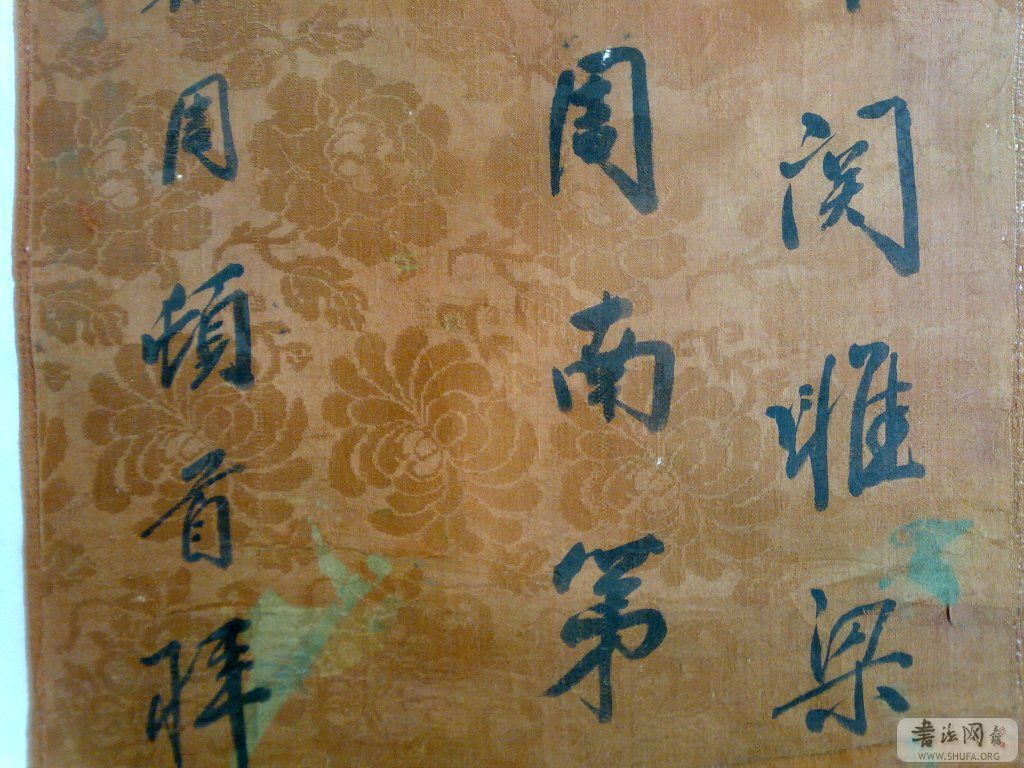 关雎梁
周南第
周頓首拜
書法网
WWW.SHUFA.ORG